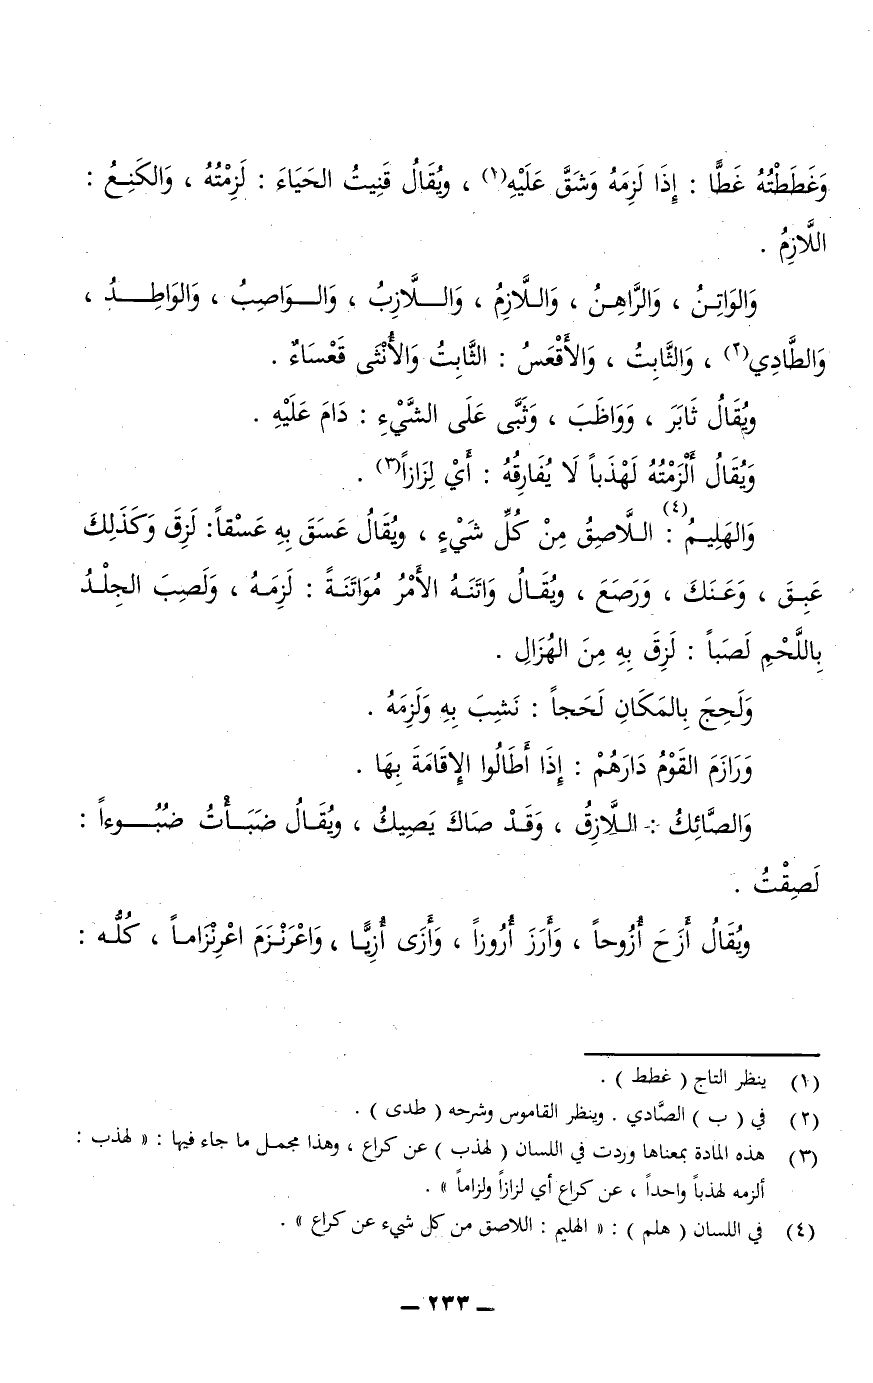 وَغَطَطْتُهُ غَطًّا : إِذَا لَزِمَهُ وَشَقَّ عَلَيْهِ(١) ، ويُقَالُ قَنِيتُ الحَيَاءَ : لَزِمْتُهُ ، وَالكَنِعُ :
اللَّازِمُ .
وَالوَاتِنُ ، وَالرَّاهِنُ ، وَاللَّازِمُ ، وَاللَّازِبُ ، وَالوَاصِبُ ، وَالوَاطِدُ ،
وَالطَّادِي(٢) ، وَالثَّابِتُ ، وَالأَقْعَسُ : الثَّابِتُ وَالأُنْثَى قَعْسَاءٌ .
ويُقَالُ ثَابَرَ ، وَوَاظَبَ ، وَثَبَّى عَلَى الشَّيْءِ : دَامَ عَلَيْهِ .
وَيُقَالُ أَلْزَمْتُهُ لَهْذَباً لَا يُفَارِقُهُ : أَيْ لِزَازاً(٣) .
وَالهَلِيمُ(٤) : اللَّاصِقُ مِنْ كُلِّ شَيْءٍ ، ويُقَالُ عَسَقَ بِهِ عَسْقاً : لَزِقَ وَكَذَلِكَ
عَبِقَ ، وَعَنَكَ ، وَرَصَعَ ، ويُقَالُ وَاتَنَهُ الأَمْرُ مُوَاتَنَةً : لَزِمَهُ ، وَلَصِبَ الجِلْدُ
بِاللَّحْمِ لَصَباً : لَزِقَ بِهِ مِنَ الهُزَالِ .
وَلَحِجَ بِالمَكَانِ لَحَجاً : نَشِبَ بِهِ وَلَزِمَهُ .
وَرَازَمَ القَوْمُ دَارَهُمْ : إِذَا أَطَالُوا الإِقَامَةَ بِهَا .
وَالصَّائِكُ : اللَّازِقُ ، وَقَدْ صَاكَ يَصِيكُ ، ويُقَالُ ضَبَأْتُ ضُبُوءاً :
لَصِقْتُ .
ويُقَالُ أَزَحَ أُزُوحاً ، وَأَرَزَ أُرُوزاً ، وَأَزَى أُزِيًّا ، وَاعْرَنْزَمَ اعْرِنْزَاماً ، كُلُّه :
(١) ينظر التاج ( غطط ) .
(٢) في ( ب ) الصَّادي . وينظر القاموس وشرحه ( طدى ) .
(٣) هذه المادة بمعناها وردت في اللسان ( لهذب ) عن كراع ، وهذا مجمل ما جاء فيها : « لهذب :
ألزمه لهذباً واحداً ، عن كراع أي لزازاً ولزاماً » .
(٤) في اللسان ( هلم ) : « الهليم : اللاصق من كل شيء عن كراع » .
— ٢٣٣ —